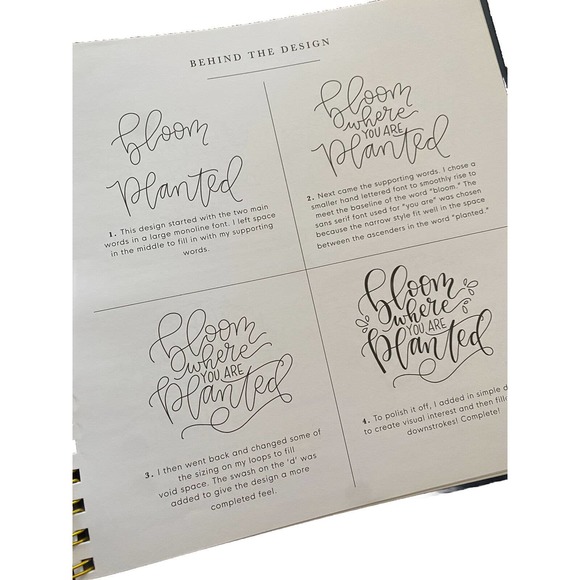 BEHIND THE DESIGN
bloom
planted
1. This design started with the two main
words in a large monoline font. I left space
in the middle to fill in with my supporting
words.
bloom
where
YOU ARE
planted
2. Next came the supporting words. I chose a
smaller hand lettered font to smoothly rise to
meet the baseline of the word "bloom." The
sans serif font used for "you are" was chosen
because the narrow style fit well in the space
between the ascenders in the word "planted."
bloom
where
YOU ARE
planted
3. I then went back and changed some of
the sizing on my loops to fill
void space. The swash on the 'd' was
added to give the design a more
completed feel.
bloom
where
YOU ARE
planted
4. To polish it off, I added in simple
to create visual interest and then
downstrokes! Complete!